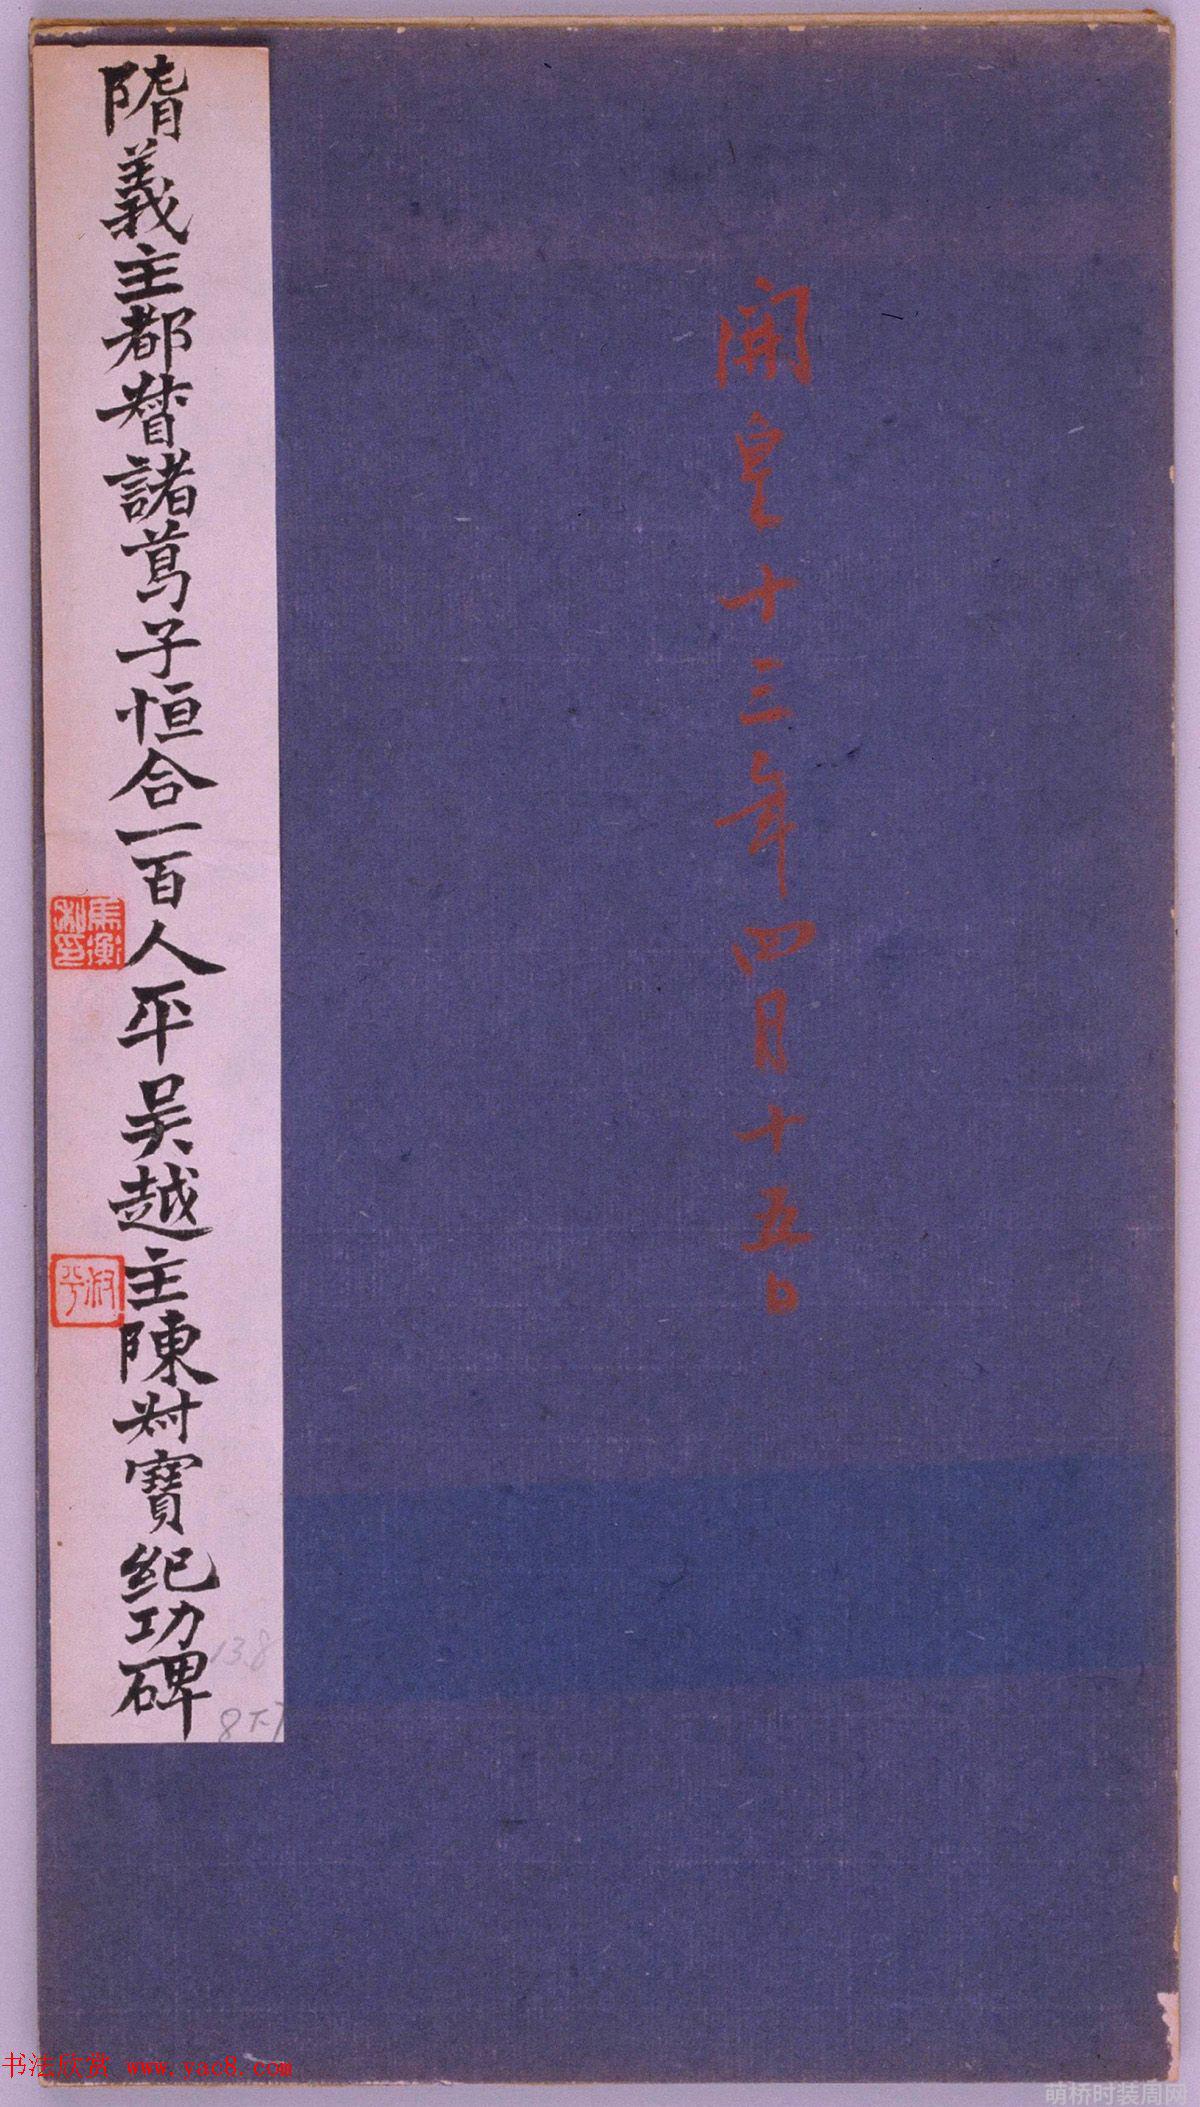 開皇十三年四月十五日
隋義主都督諸葛子恒合一百人平吳越主陳叔寶紀功碑
馬衡
叔平
138
8下7
书法欣赏 www.yac8.com
萌桥时装周网